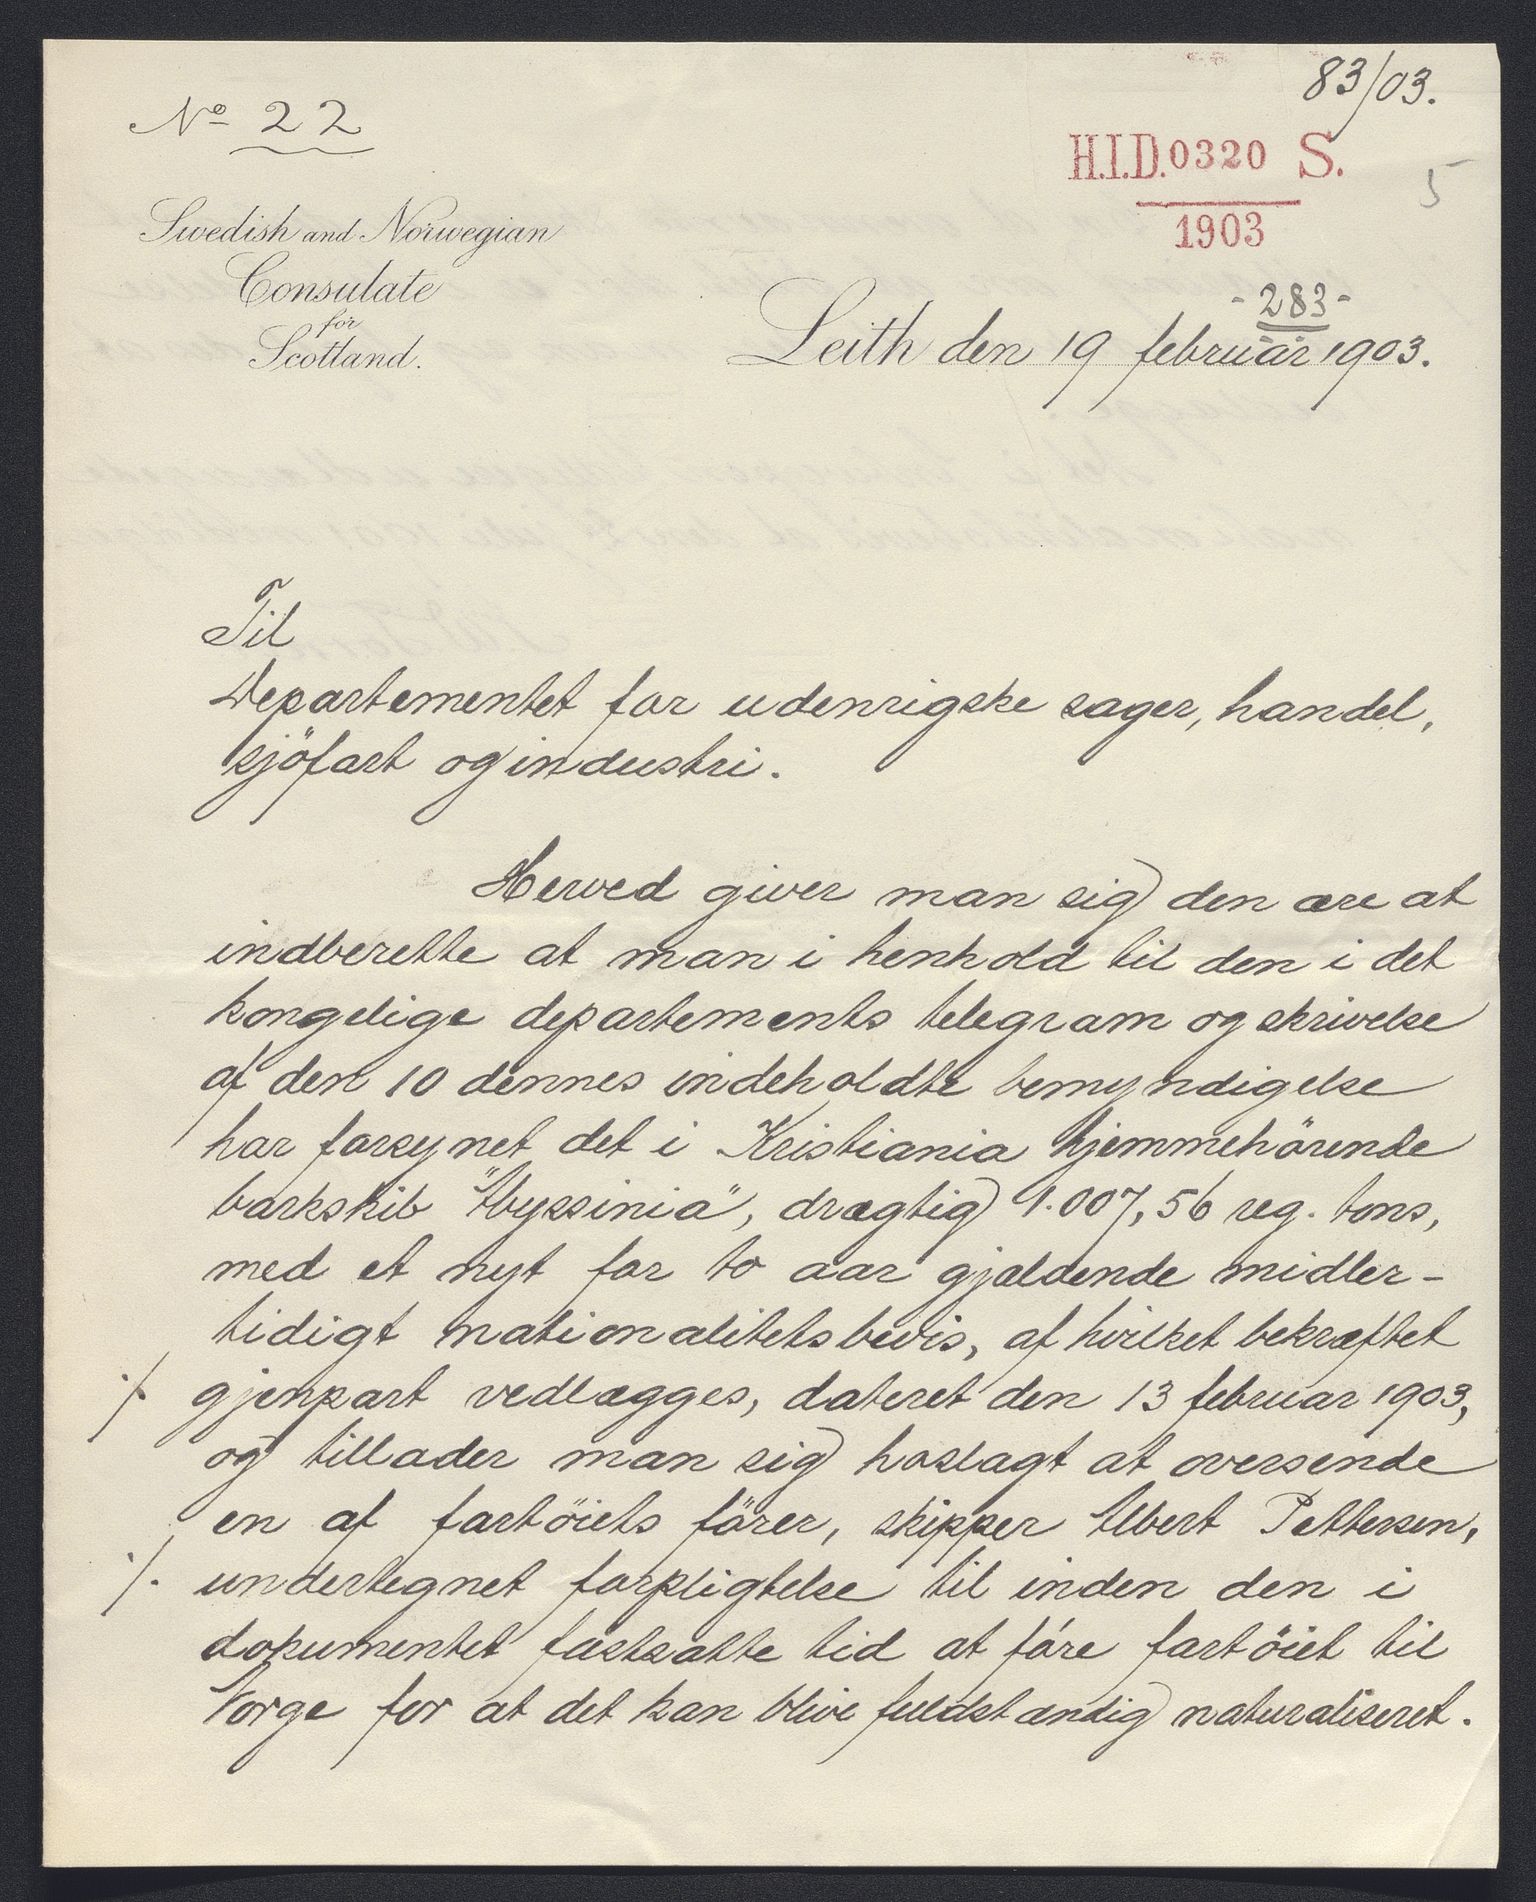 83/03.
Nº 22
H.I.D. 0320 S.
1903
5
Swedish and Norwegian
Consulate
for
Scotland.
- 283 -
Leith den 19 februar 1903.
Til
Departementet for udenrigske sager, handel,
sjöfart og industri.
Herved giver man sig den ære at
indberette at man i henhold til den i det
kongelige departements telegram og skrivelse
af den 10 dennes indeholdte bemyndigelse
har forsynet det i Kristiania hjemmehörende
barkskib "Abyssinia", drægtig 1.007,56 reg. tons,
med et nyt for to aar gjældende midler-
tidigt nationalitetsbevis, af hvilket bekræftet
./. gjenpart vedlægges, dateret den 13 februar 1903,
og tillader man sig hoslagt at oversende
en af fartöiets förer, skipper Albert Pettersen,
./. undertegnet forpligtelse til inden den i
dokumentet fastsatte tid at före fartöiet til
Norge for at det kan blive fuldstændig naturaliseret.